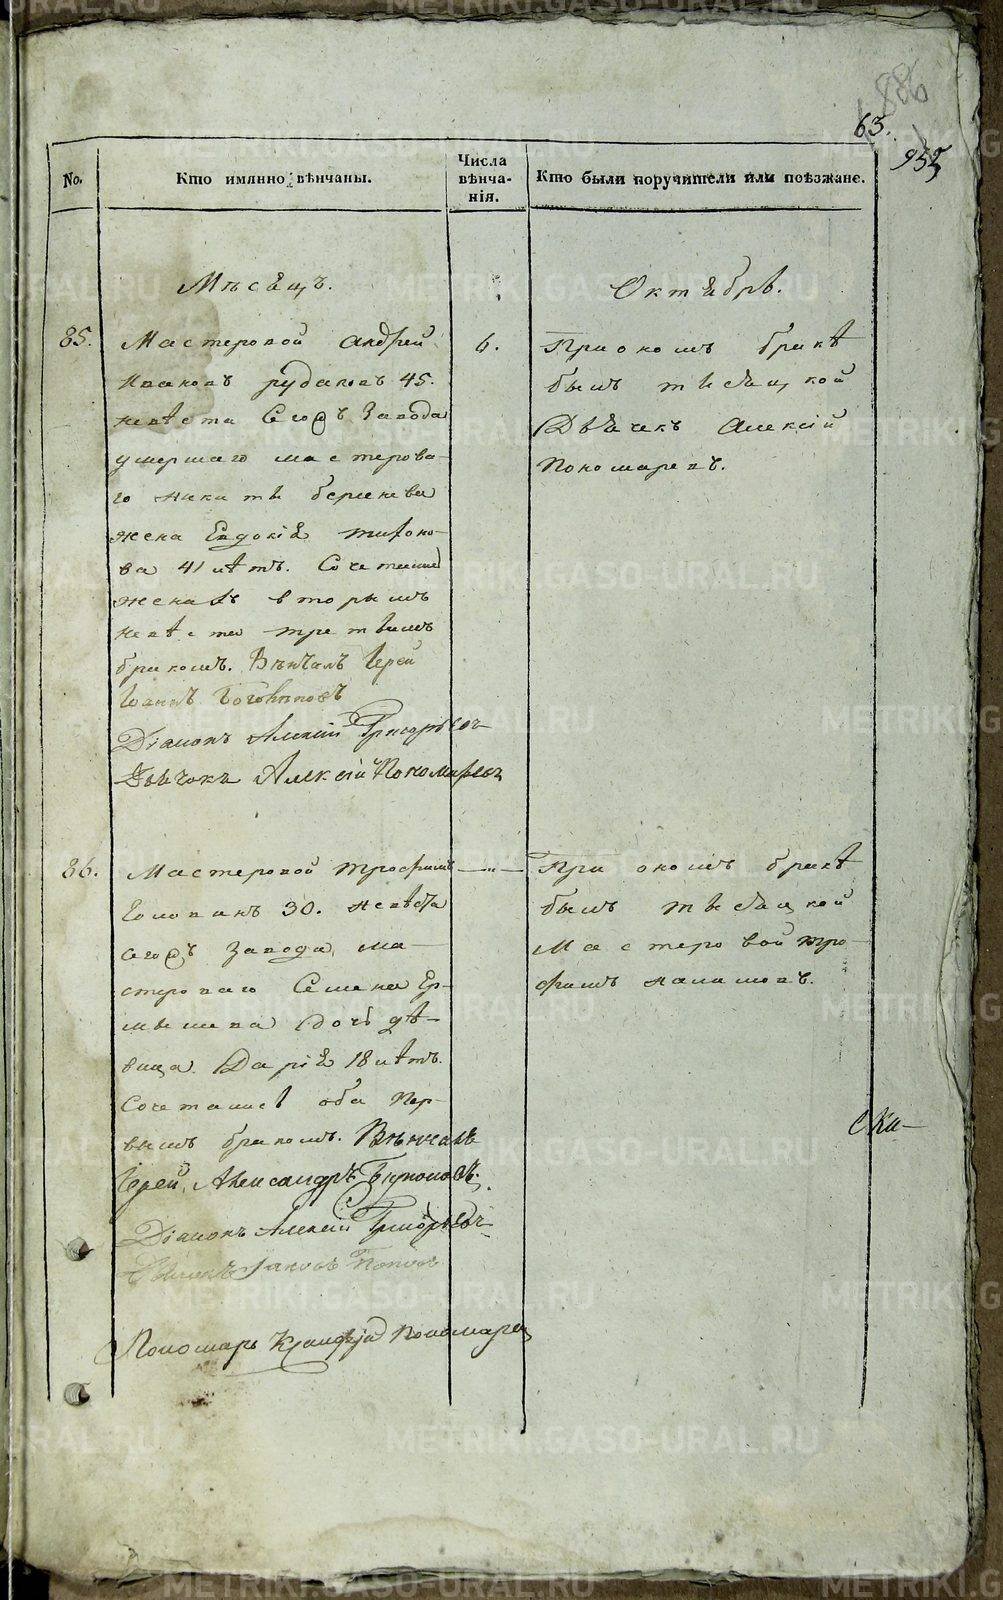 886
63.
952
No.
Кто имянно вѣнчаны.
Числа
вѣнча-
нія.
Кто были поручители или поѣзжане.
Мѣсяцъ.
Октябрь.
85.
Мастеровой андрей
Ивановъ рудаковъ 45.
невѣста Сегожъ Завода
умершаго мастерова-
го никиты
жена Евдокія тихоно-
ва 41 лѣтъ.
женихъ вторымъ
невѣста третьимъ
бракомъ. Вѣнчалъ Іерей
Іоаннъ
Діаконъ Алексій Григорьевъ
Дьячокъ Алексій Пономаревъ
6.
При ономъ бракѣ
былъ тысяцкой
Дьячекъ Алексій
Пономаревъ.
86.
Мастеровой трофимъ
30. невѣста
сегожъ завода, ма-
стероваго Семена Ер-
мышева дочь дѣ-
вица Дарія 18 лѣтъ.
Сочетались оба пер-
вымъ бракомъ. Вѣнчалъ
Іерей Александръ
Діаконъ Алексій Григорьевъ
Дьячекъ Іаковъ Поповъ
Пономарь Пономаревъ
— " —
При ономъ бракѣ
былъ тысяцкой
Мастеровой тро-
фимъ
ска-
METRIKI.GASO-URAL.RU